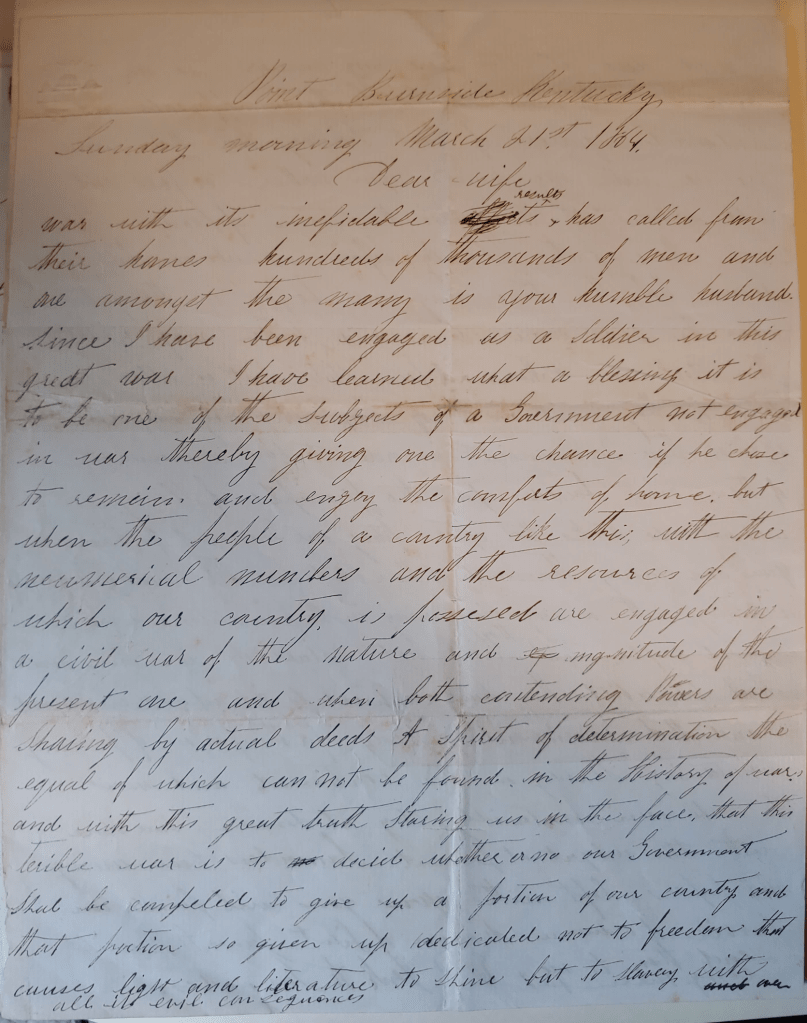 Point Burnside Kentucky
Sunday morning March 21st 1864.
Dear wife
results
war with its inefidable , has called from
their homes hundreds of thousands of men and
one amongst the many is your humble husband.
since I have been engaged as a soldier in this
great war I have learned what a blessing it is
to be one of the subjects of a Government not engaged
in war thereby giving one the chance if he chose
to remain. and engoy the comforts of home. but
when the people of a country like this, with the
neumerical numbers and the resources of
which our country. is possesed are engaged in
a civil war of the nature and mgnitude of the
present one and when both contending Powers are
shaing by actual deeds A Spirit of determination the
equal of which can not be found. in the History of wars
and with this great truth staring us in the face. that this
terible war is to decid whether or no our Government
shal be compeled to give up a portion of our country and
that portion so given up dedicated not to freedom that
causes light and literature to shine but to slavery with
all its evil consequences